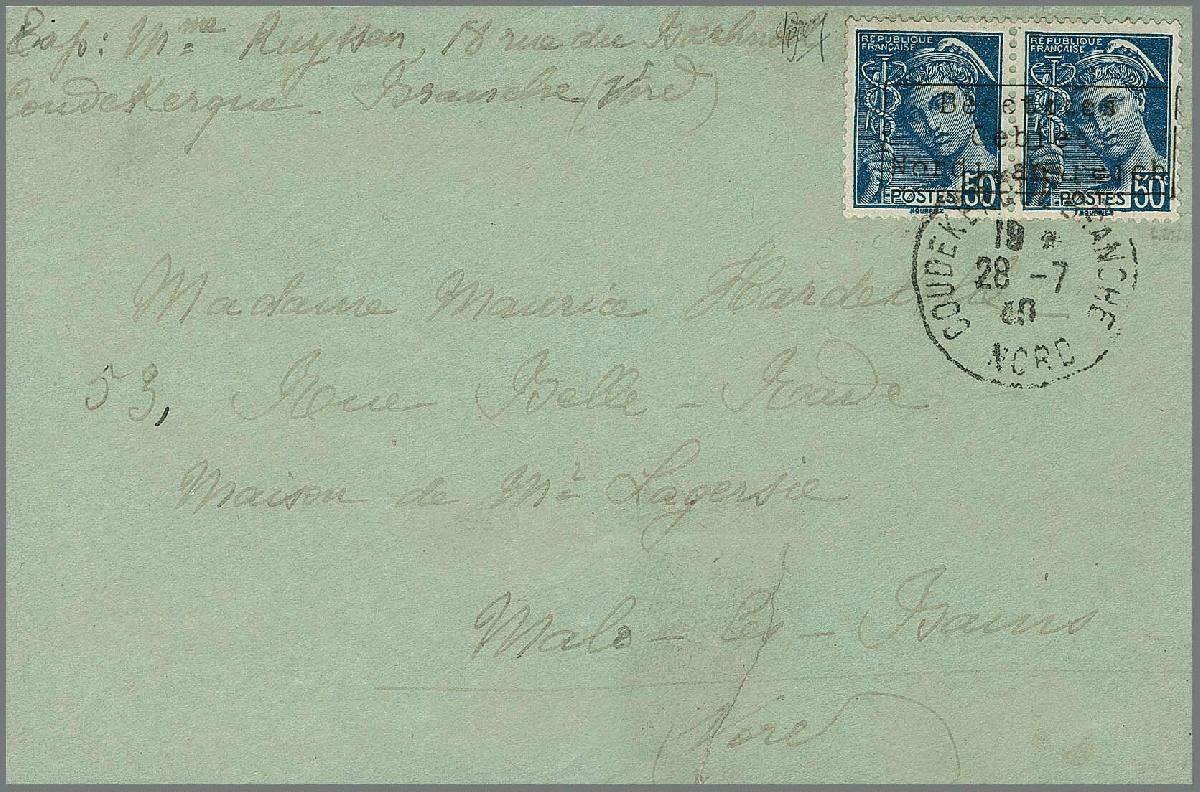 Exp: Mme Ruyssen, 58 rue du
Coudekerque - Branche (Nord)
RÉPUBLIQUE FRANÇAISE
RÉPUBLIQUE FRANÇAISE
Besetztes
Gebiet
Nordfrankreich
POSTES 50
POSTES 50
COUDEKERQUE BRANCHE
19 *
28 -7
40
NORD
Madame Maurice
53, Rue Belle - Rade
Maison de Mr Lagersie
Malo - les - Bains
Nord